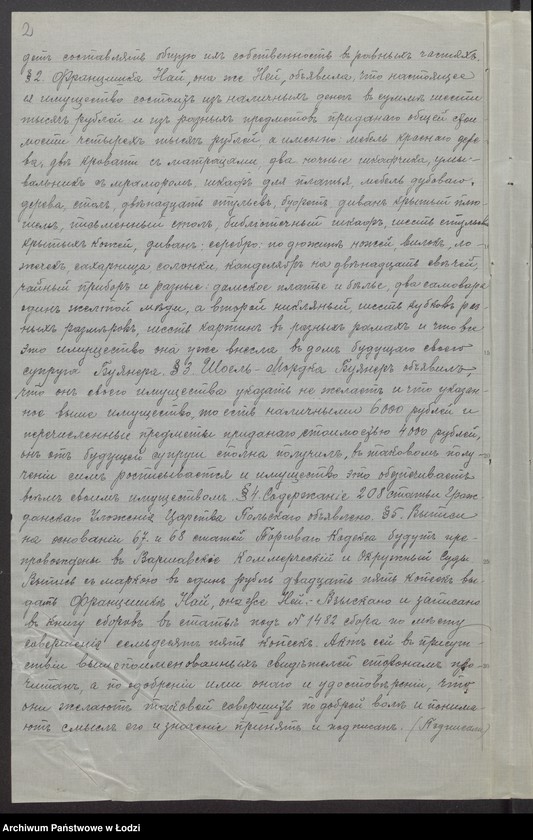 2
детъ составлять общую ихъ собственность въ равныхъ частяхъ.
§ 2. Францишка Най, она же Ней, объявила, что настоящее
ея имущество состоитъ изъ наличныхъ денегъ въ суммѣ шести
тысячъ рублей и изъ разныхъ предметовъ приданаго общей стои
мости четырехъ тысячъ рублей, а именно: мебель краснаго дере
ва, двѣ кровати съ матрацами, два ночные шкафчика, умы-
вальникъ съ мраморомъ, шкафъ для платья, мебель дубоваго
дерева, столъ, двѣнадцать стульевъ, буфетъ, диванъ крытый плю
шемъ, письменный столъ, библіотечный шкафъ, шесть стульевъ
крытыхъ кожей, диванъ; серебро: по дюжинѣ ножей, вилокъ, ло
жечекъ, сахарница, солонки, канделябръ на двѣнадцать свѣчей,
чайный приборъ и разные: дамское платье и бѣлье, два самовара
одинъ желтой мѣди, а второй никеляный, шесть кубковъ раз
ныхъ размѣровъ, шесть картинъ въ разныхъ рамахъ и что все
это имущество она уже внесла въ домъ будущаго своего
супруга Буянера. § 3. Шоель-Мордка Буянеръ объявилъ,
что онъ своего имущества указать не желаетъ и что указан-
ное выше имущество, то есть наличными 6000 рублей и
перечисленные предметы приданаго, стоимостью 4000 рублей,
онъ отъ будущей супруги сполна получилъ, въ таковомъ полу
ченіи симъ росписывается и имущество это обезпечиваетъ
всѣмъ своимъ имуществомъ. § 4. Содержаніе 208 статьи Граж
данскаго Уложенія Царства Польскаго объявлено. § 5. Выписи
на основаніи 67 и 68 статей Торговаго Кодекса будутъ пре-
провождены въ Варшавскіе Коммерческій и Окружный Суды.
Выпись съ маркою въ одинъ рубль двадцать пять копѣекъ вы
дать Францишкѣ Най, она же Ней. - Взыскано и записано
въ книгу сборовъ въ статьѣ подъ N 1482 сбора по мѣсту
совершенія семьдесятъ пять копѣекъ. Актъ сей въ присут-
ствіи вышепоименованныхъ свидѣтелей сторонамъ про-
читанъ, а по одобреніи ими онаго и удостовѣреніи, что
они желаютъ таковой совершить по доброй волѣ и понима-
ютъ смыслъ его и значеніе принятъ и подписанъ. (Подписали)
Archiwum Państwowe w Łodzi